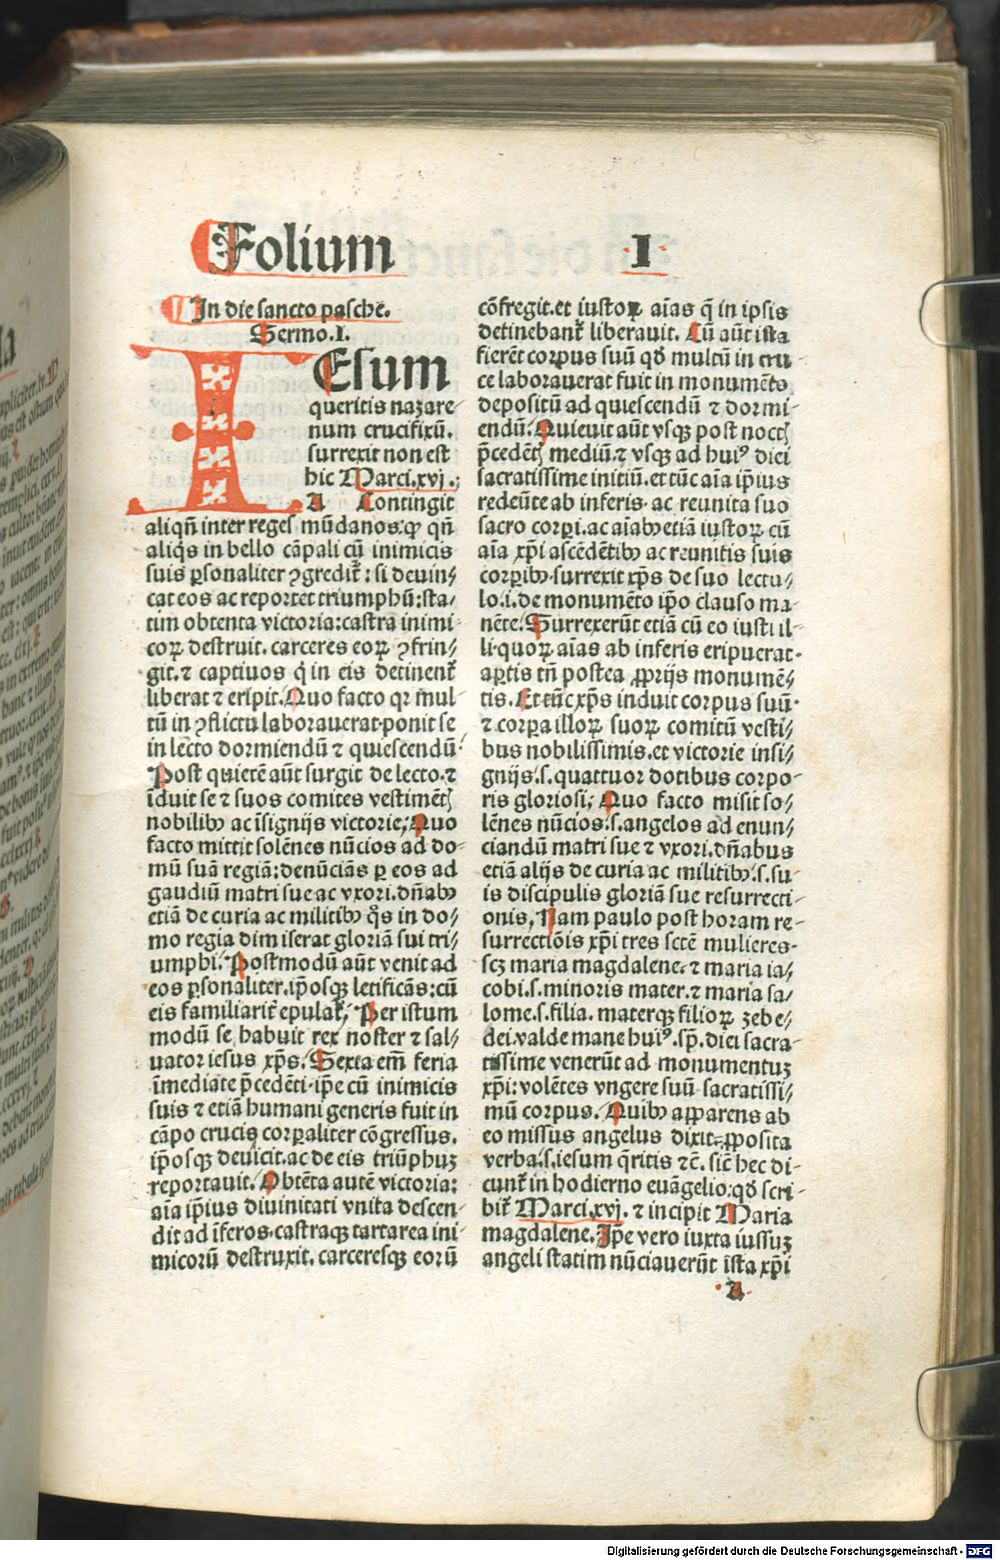 Folium I
In die sancto pasche.
Sermo.I.
IEsum
queritis nazare-
num crucifixū.
surrexit non est
hic Marci.xvj.;
A Contingit
aliqñ inter reges mūdanos:ꝙ qñ
aliqs in bello cāpali cū inimicis
suis ꝑsonaliter ꝯgredit᷑: si deuin⸗
cat eos ac reportet triumphū:sta⸗
tim obtenta victoria:castra inimi-
coꝝ destruit. carceres eoꝝ ꝯfrin⸗
git. ⁊ captiuos q̇ in eis detinent᷑
liberat ⁊ eripit. Quo facto qꝛ mul
tū in ꝯflictu laborauerat ponit se
in lecto dormiendū ⁊ quiescendū.
Post quietē aūt surgit de lecto.⁊
īduit se ⁊ suos comites vestimētꝭ
nobilibꝰ ac īsignijs victorie; Quo
facto mittit solēnes nūcios ad do-
mū suā regiā: denūciās ꝑ eos ad
gaudiū matri sue ac vxori.dñabꝰ
etiā de curia ac militibꝰ q̊s in do⸗
mo regia dimiserat gloriā sui tri⸗
umphi. Postmodū aūt venit ad
eos ꝑsonaliter.ip̄osqꝫ letificās: cū
eis familiarit᷑ epulat᷑, Per istum
modū se habuit rex noster ⁊ sal⸗
uator iesus xp̄s. Sexta em̄ feria
īmediate p̄cedēti.ip̄e cū inimicis
suis ⁊ etiā humani generis fuit in
cāpo crucis corꝑaliter cōgressus.
ip̄osqꝫ deuicit.ac de eis triūphuꝫ
reportauit. Obtēta autē victoria:
aīa ip̄ius diuinitati vnita descen-
dit ad īferos.castraqꝫ tartarea ini-
micorū destruxit. carceresqꝫ eorū
cōfregit.et iustoꝝ aīas q̄ in ipsis
detinebant᷑ liberauit. Cū aūt ista
fierēt corpus suū qd̄ multū in cru
ce laborauerat fuit in monumēto
depositū ad quiescendū ⁊ dormi-
endū. Quieuit aūt vsqꝫ post noctꝭ
p̄cedētꝭ mediū.⁊ vsqꝫ ad huiꝰ diei
sacratissime initiū.et tūc aīa ip̄ius
redeūte ab inferis. ac reunita suo
sacro corꝑi.ac aīabꝰ etiā iustoꝝ cū
aīa xp̄i ascēdētibꝰ ac reunitis suis
corꝑibꝰ.surrexit xp̄s de suo lectu⸗
lo.i.de monumēto ip̄o clauso ma-
nēte. Surrexerūt etiā cū eo iusti il-
li quoꝝ aīas ab inferis eripuerat.
aꝑtis tñ postea ꝓprijs monumē⸗
tis. Et tūc xp̄s induit corpus suū.
⁊ corꝑa illoꝝ suoꝝ comitū vesti⸗
bus nobilissimis.et victorie insi⸗
gnijs.s.quattuor dotibus corpo-
ris gloriosi; Quo facto misit so⸗
lēnes nūcios.s.angelos ad enun⸗
ciandū matri sue ⁊ vxori.dñabus
etiā alijs de curia ac militibꝰ.s.su-
is discipulis gloriā sue resurrecti-
onis, Nam paulo post horam re-
surrectiōis xp̄i tres sctē mulieres.
scꝫ maria magdalene.⁊ maria ia⸗
cobi.s.minoris mater.⁊ maria sa⸗
lome.s.filia. materqꝫ filioꝝ zebe⸗
dei.valde mane huiꝰ.sp̄. diei sacra-
tissime venerūt ad monumentuꝫ
xp̄i: volētes vngere suū sacratissi⸗
mū corpus. Quibꝰ apparens ab
eo missus angelus dixit.ꝓposita
verba.s.iesum q̄ritis ⁊c̄. sic̄ hec di-
cunt᷑ in hodierno euāgelio:qd̄ scri-
bit᷑ Marci.xvj. ⁊ incipit Maria
magdalene. Ip̄e vero iuxta iussuꝫ
angeli statim nūciauerūt ista xp̄i
A
Digitalisierung gefördert durch die Deutsche Forschungsgemeinschaft - DFG